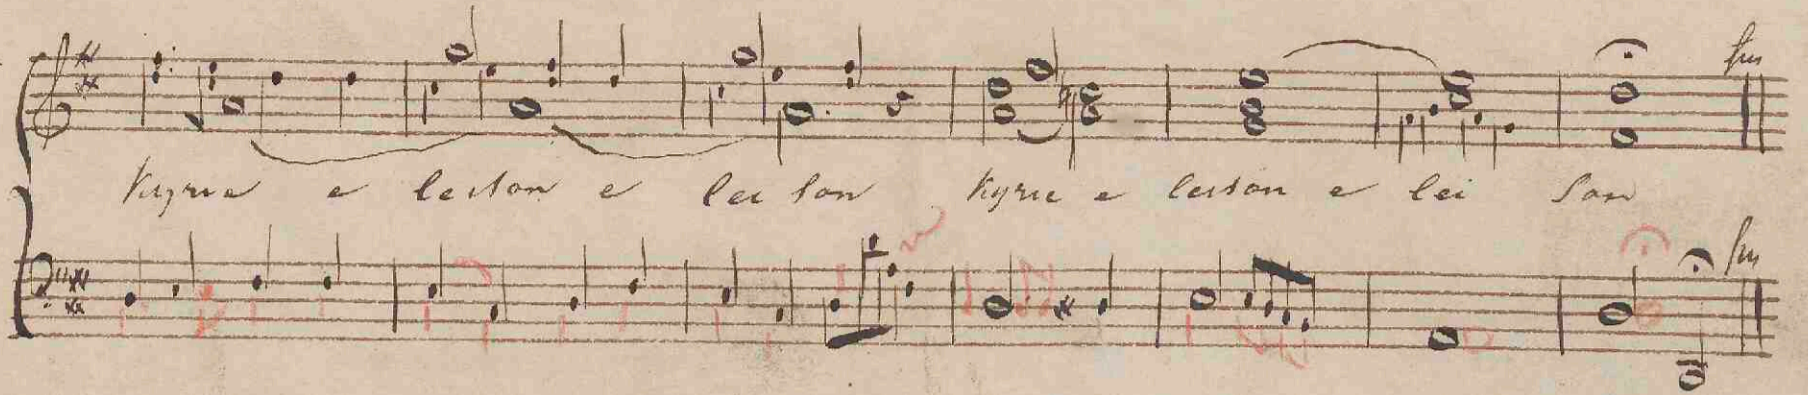 fin
Kyrie e leison e lei son Kyrie e leison e lei son
fin